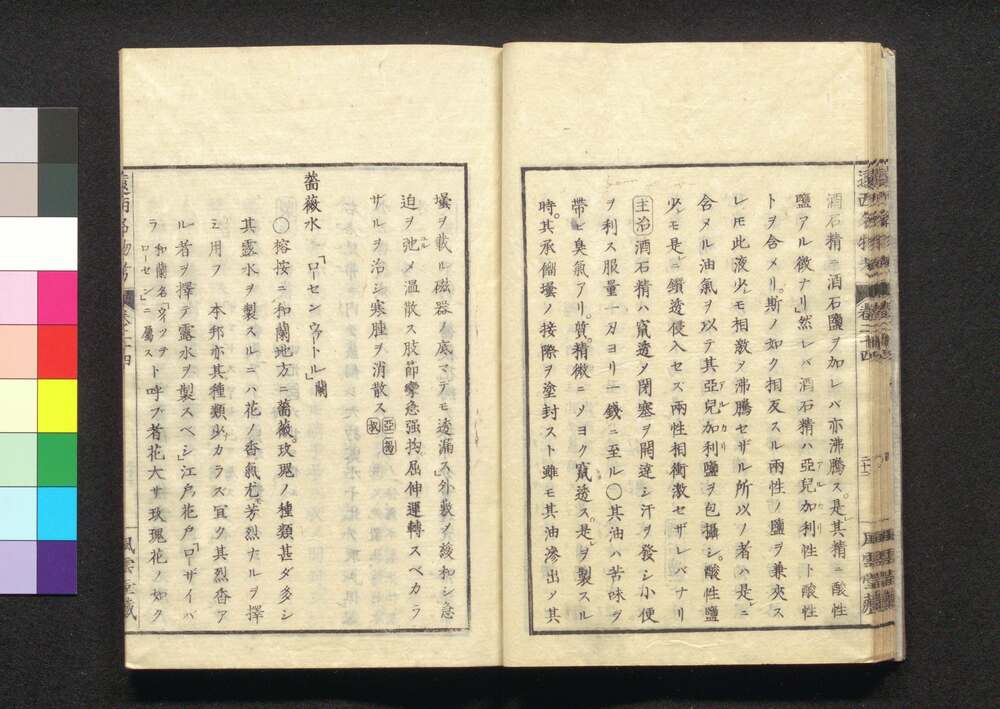 酒石精ニ酒石鹽ヲ加レバ亦沸騰ス。是レ其精ニ酸性
鹽アル徴ナリ」然レバ酒石精ハ亞兒加利性ト酸性
トヲ合メリ。斯ノ如ク相反スル兩性ノ鹽ヲ兼夾ス
レモ此液少モ相激メ沸騰セザル所以ノ者ハ是レニ
合メル油氣ヲ以テ其亞兒加利鹽ヲ包攝シ。酸性鹽
少モ是レニ鑚透侵入セズ兩性相衝激セザレバナリ
主治 酒石精ハ竄透メ閉塞ヲ開達シ汗ヲ發シ小便
ヲ利ス服量一刄ヨリ一錢ニ至ル〇其油ハ苦味ヲ
帶ヒ臭氣アリ。質精微ニソヨク竄透ス。是レヲ製スル
時。其承㽍壜ノ接際ヲ塗封スト雖モ其油滲出ソ其
遠西名物考 卷二十四
二十二
風雲堂藏
壜ヲ載ル磁器ノ底マデモ透漏ス」外敷メ緩和シ急
迫ヲ弛メ温散ス肢節攣急强拘屈伸運轉スベカラ
ザルヲ治シ寒腫ヲ消散ス
薔薇水 「ローセンウヮトル」蘭
〇榕按ニ和蘭地方ニ薔薇。玫瑰ノ種類甚ダ多シ
其露水ヲ製スルニハ花ノ香氣尤モ芳烈ナルヲ擇
ミ用フ 本邦亦其種類少カラス宜ク其烈香ア
ル者ヲ擇テ露水ヲ製スベシ」江戸花戸「ローザイバ
ラ 和蘭名「ローセン」ニ屬ス ト呼フ者花大サ玫瑰花ノ如ク
遠西名物考 卷二十四
風雲堂藏